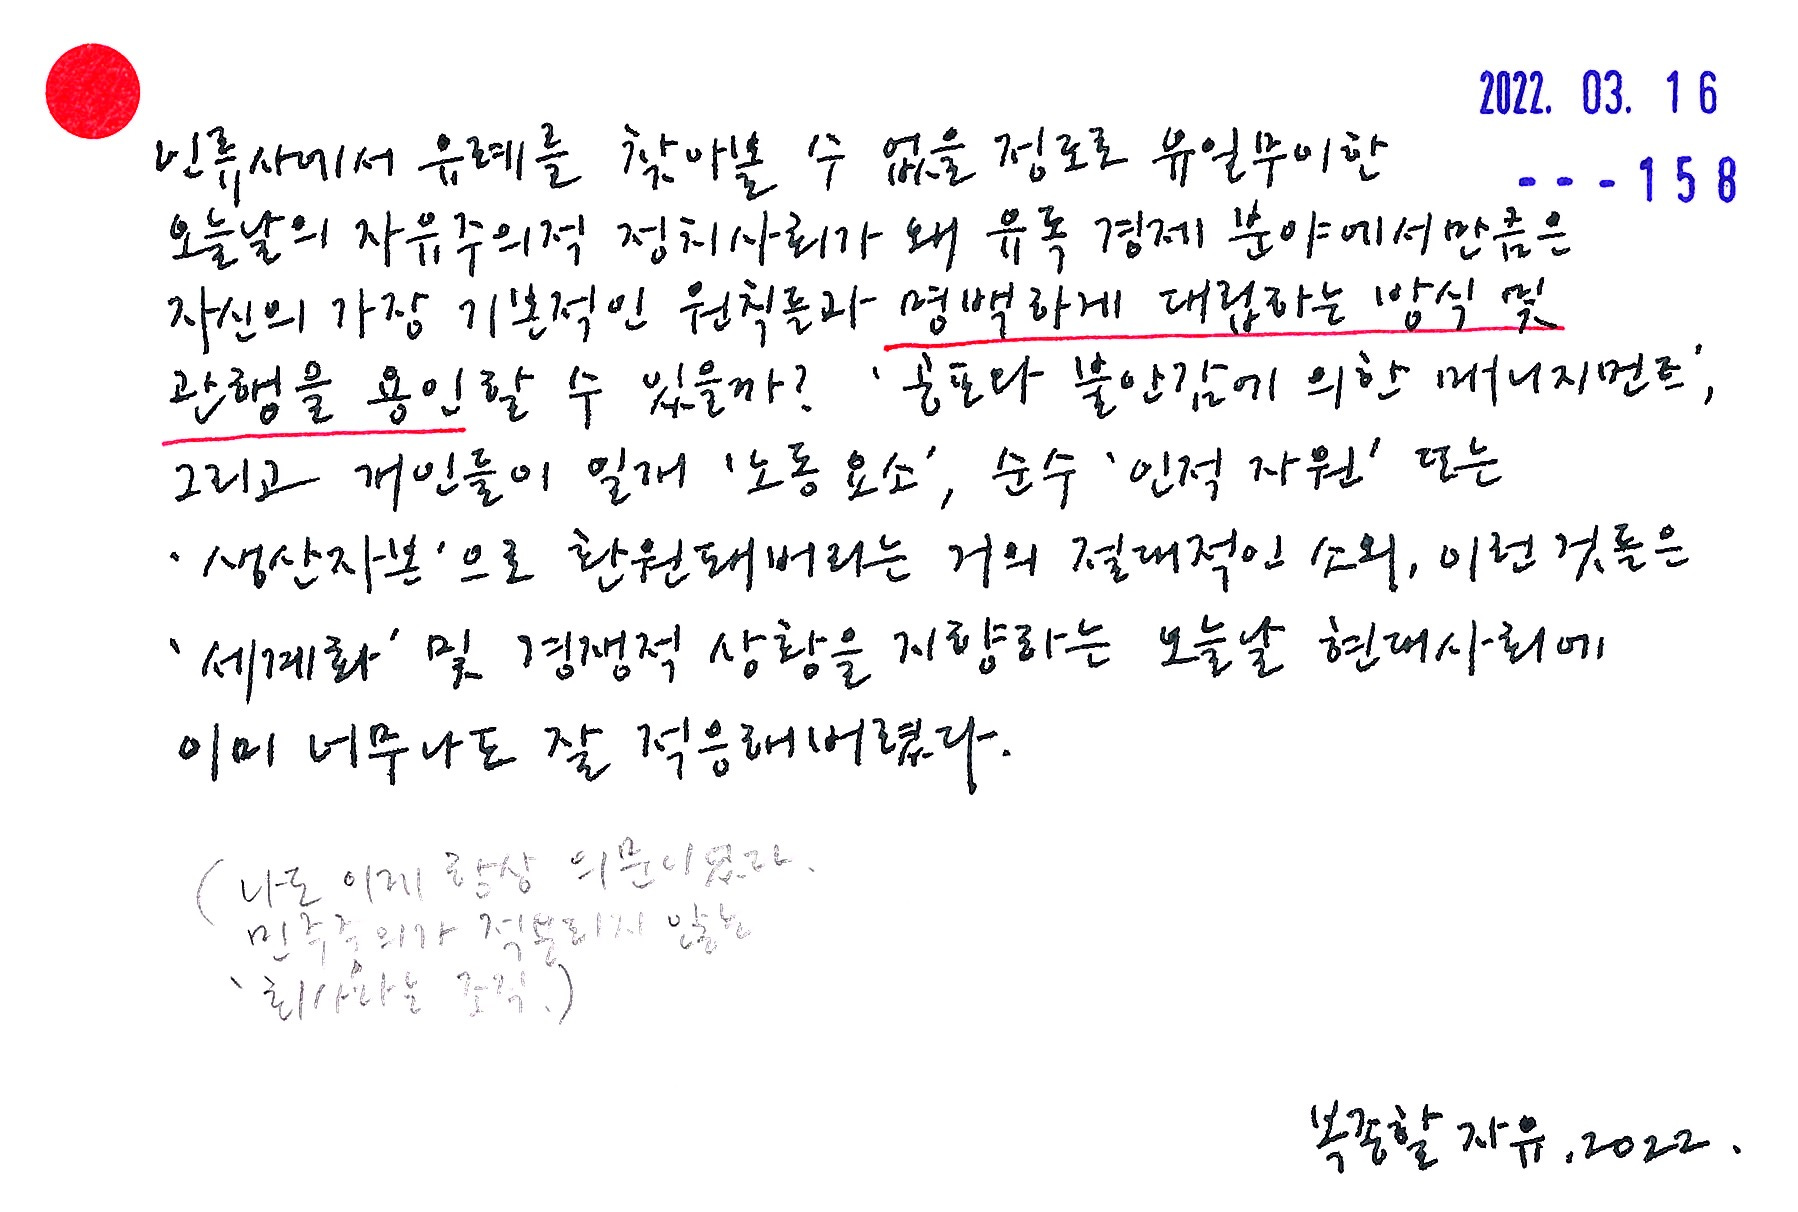 2022. 03. 16
---158
인류사에서 유례를 찾아볼 수 없을 정도로 유일무이한
오늘날의 자유주의적 정치사회가 왜 유독 경제 분야에서만큼은
자신의 가장 기본적인 원칙들과 명백하게 대립하는 방식 및
관행을 용인할 수 있을까? '공포와 불안감에 의한 매니지먼트',
그리고 개인들이 일개 '노동 요소', 순수 '인적 자원' 또는
'생산자본'으로 환원돼버리는 거의 절대적인 소외, 이런 것들은
'세계화' 및 경쟁적 상황을 지향하는 오늘날 현대사회에
이미 너무나도 잘 적응해버렸다.
(나도 이게 항상 의문이었다.
민주주의가 적용되지 않는
'회사라는 조직.)
복종할 자유, 2022.